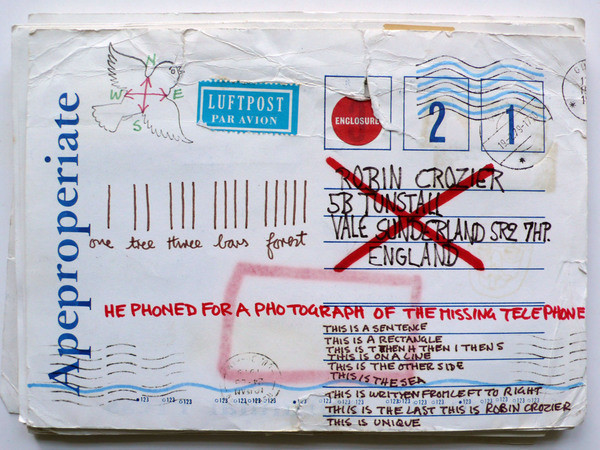 Apeproperiate
N
W E
S
LUFTPOST
PAR AVION
ENCLOSURE
2 1
ROBIN CROZIER
5B TUNSTALL
VALE SUNDERLAND SR2 7HP.
ENGLAND
one tree three bars forest
HE PHONED FOR A PHOTOGRAPH OF THE MISSING TELEPHONE
THIS IS A SENTENCE
THIS IS A RECTANGLE
THIS IS T THEN H THEN I THEN S
THIS IS ON A LINE
THIS IS THE OTHER SIDE
THIS IS THE SEA
THIS IS WRITTEN FROM LEFT TO RIGHT
THIS IS THE LAST THIS IS ROBIN CROZIER
THIS IS UNIQUE
123 123 123 123 123 123 123 123